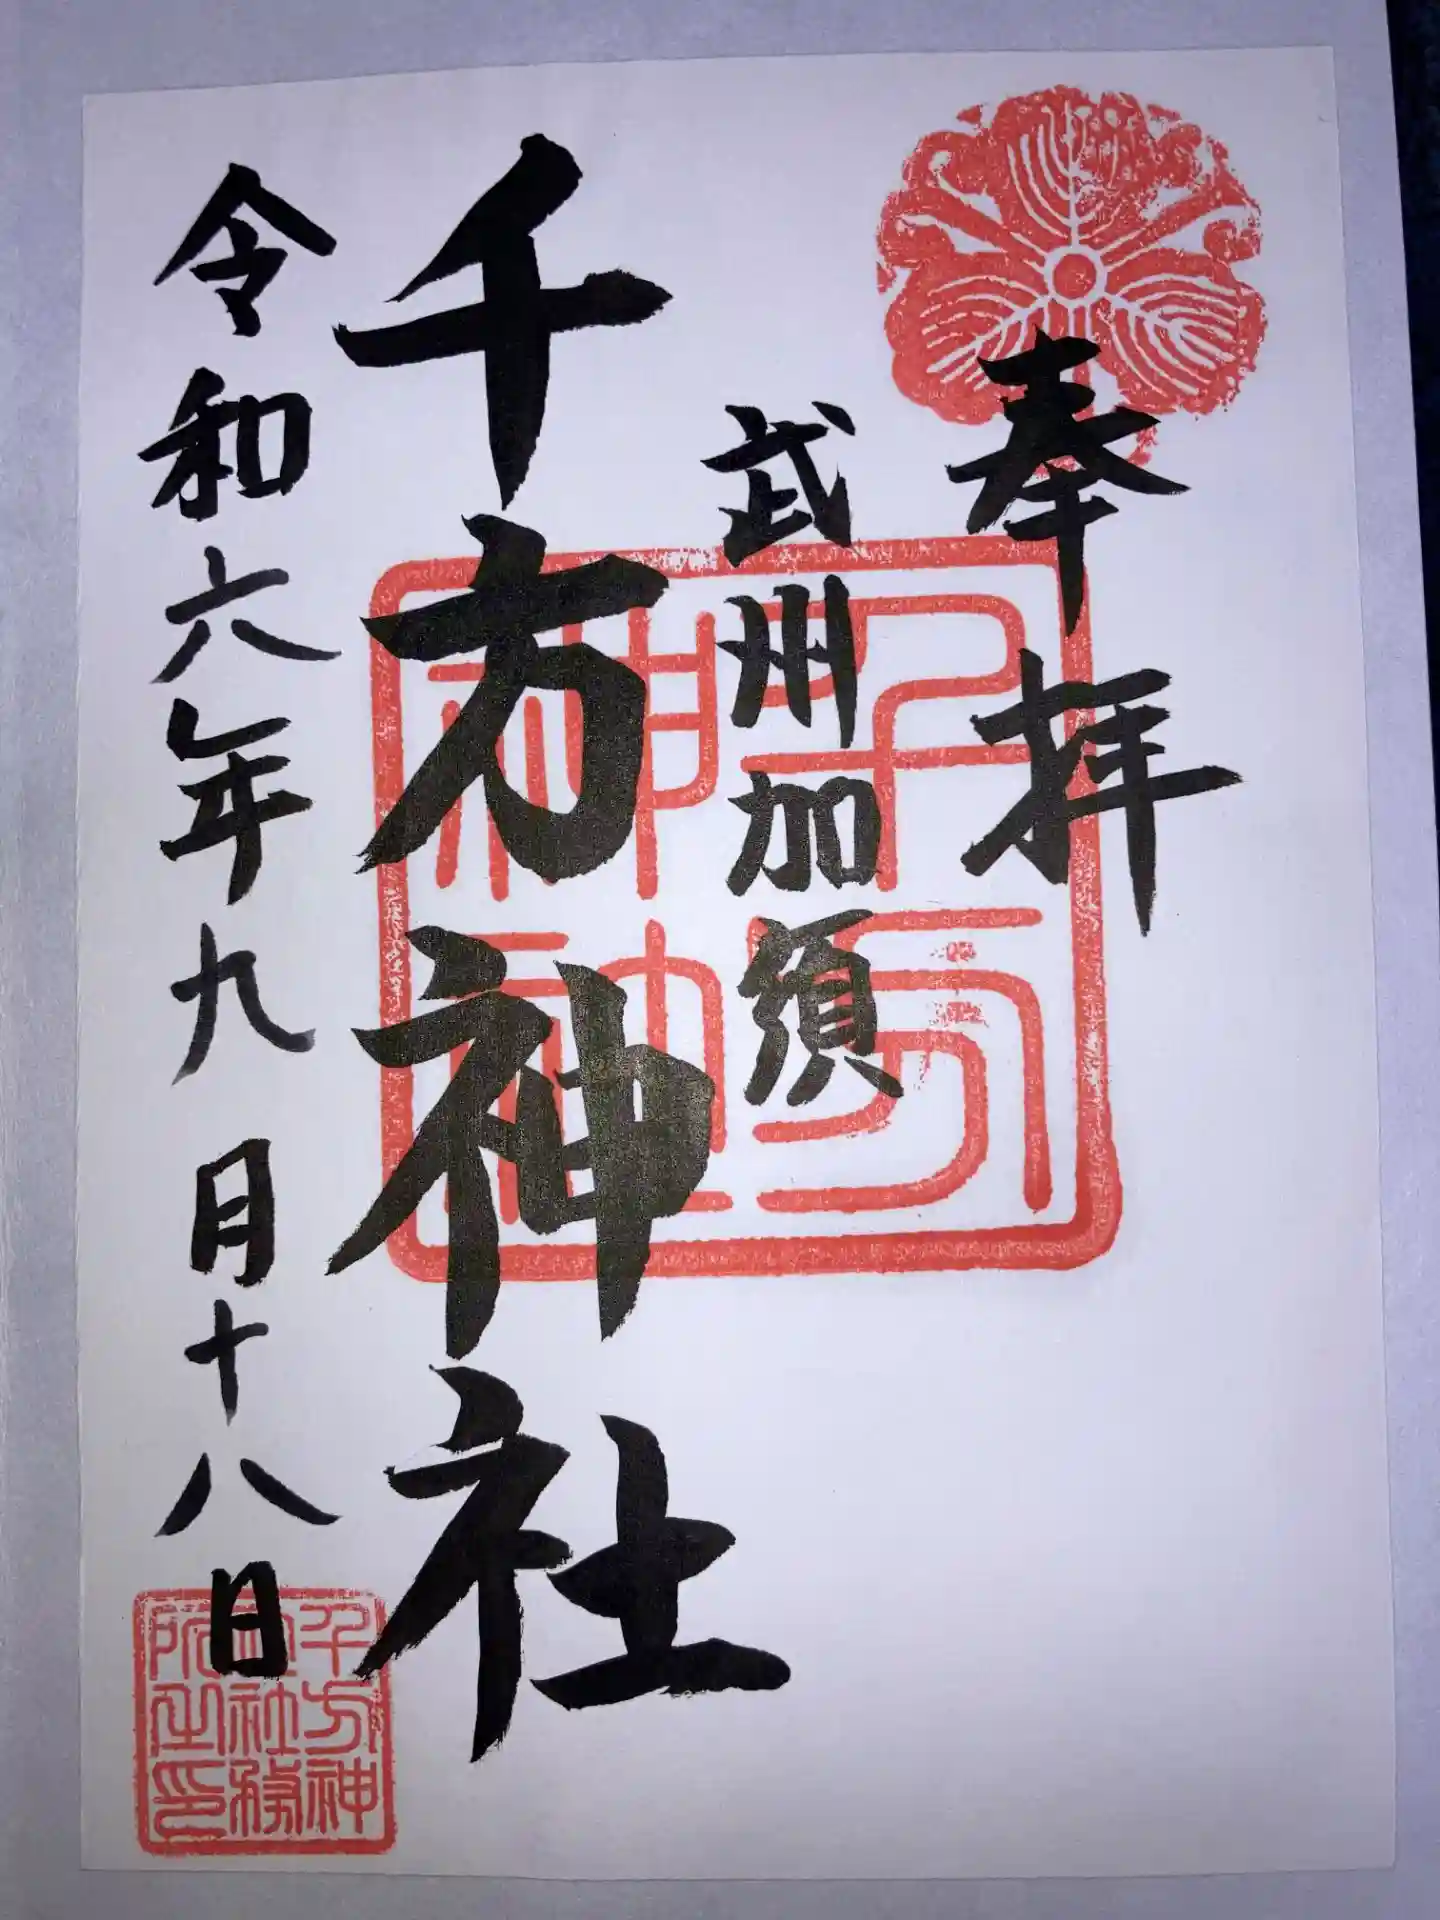 奉拝
武州加須
千方神社
令和六年九月十八日
千方神社
千方神
社務
所之印